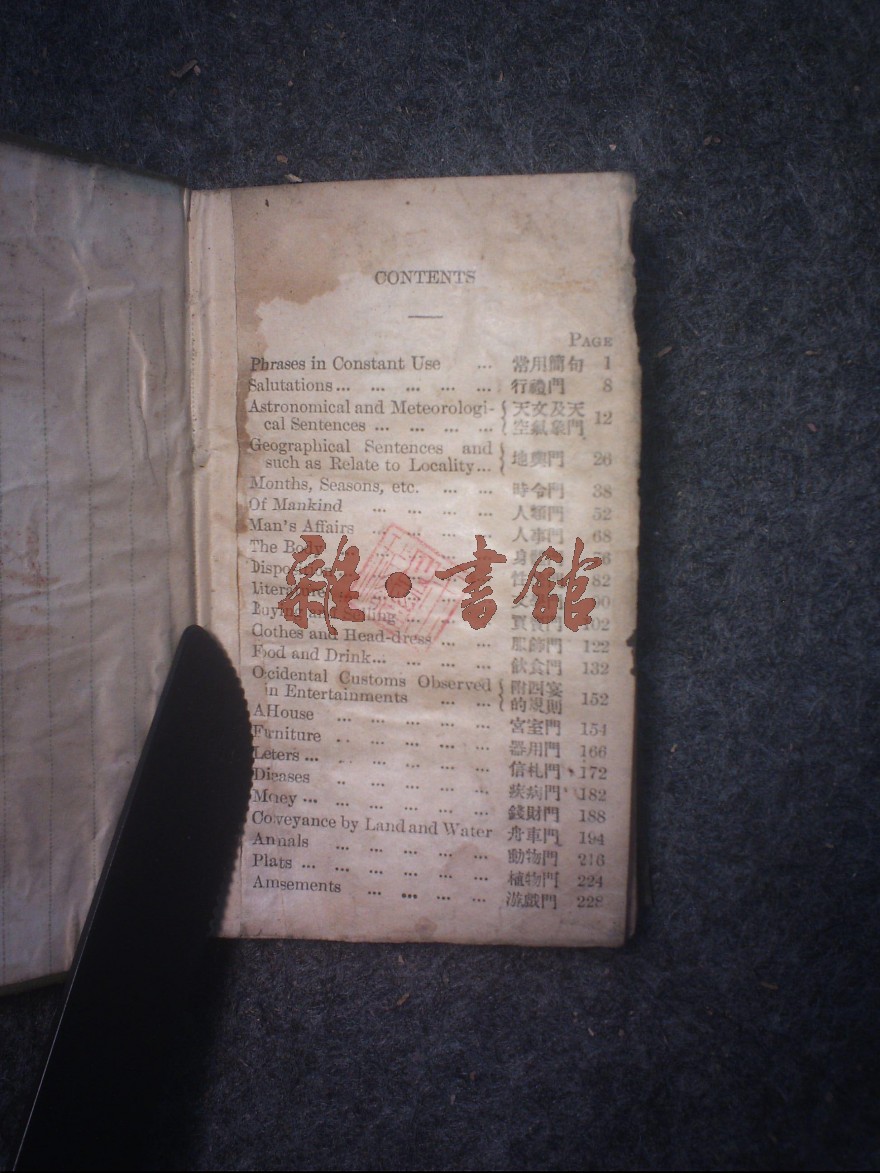 CONTENTS
PAGE
Phrases in Constant Use ... 常用簡句 1
Salutations... ... ... ... ... 行禮門 8
Astronomical and Meteorologi- { 天文及天
cal Sentences ... ... ... ... { 空氣象門 12
Geographical Sentences and
such as Relate to Locality... } 地輿門 26
Months, Seasons, etc. ... ... 時令門 38
Of Mankind ... ... ... ... 人類門 52
Man's Affairs ... ... ... ... 人事門 68
The Body 身
82
Literature
Buying and 102
Cothes and Head-dress ... ... 服飾門 122
Food and Drink... ... ... ... 飲食門 132
Occidental Customs Observed { 附西宴
in Entertainments ... ... { 的規則 152
A House ... ... ... ... ... 宮室門 154
Furniture ... ... ... ... ... 器用門 166
Leters ... ... ... ... ... ... 信札門 172
Diseases ... ... ... ... ... 疾病門 182
Money ... ... ... ... ... ... 錢財門 188
Conveyance by Land and Water 舟車門 194
Annals ... ... ... ... ... 動物門 216
Plats ... ... ... ... ... ... 植物門 224
Amsements ... ... ... ... 游戲門 228
雜·書館